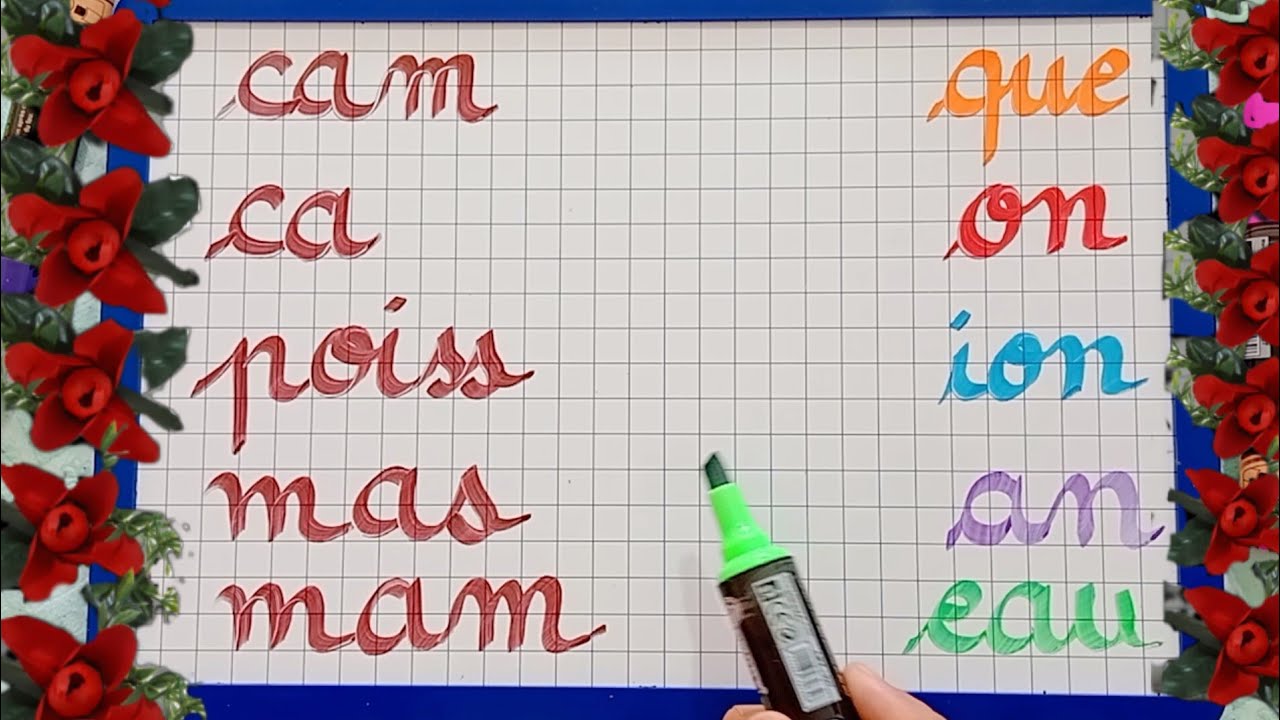 cam que
ca on
poiss ion
mas an
mam eau